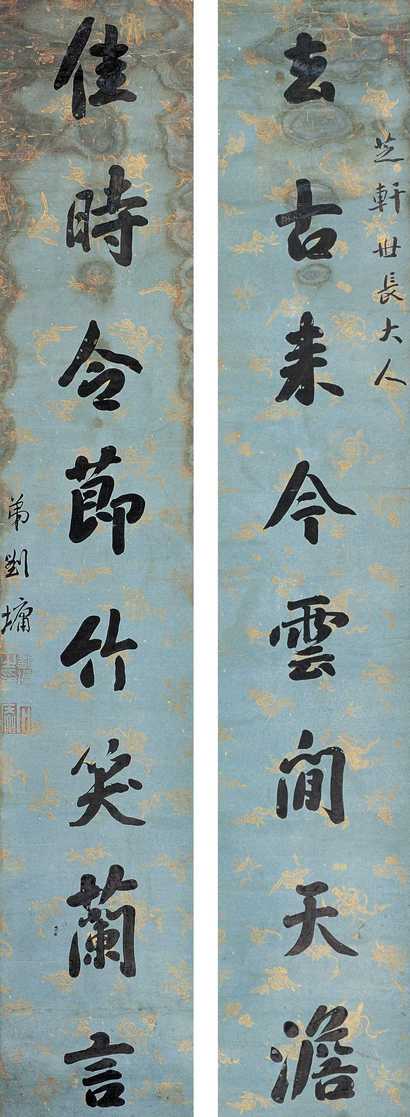 芝軒世長大人
去古来今雲間天澹
佳時令節竹笑蘭言
弟劉墉